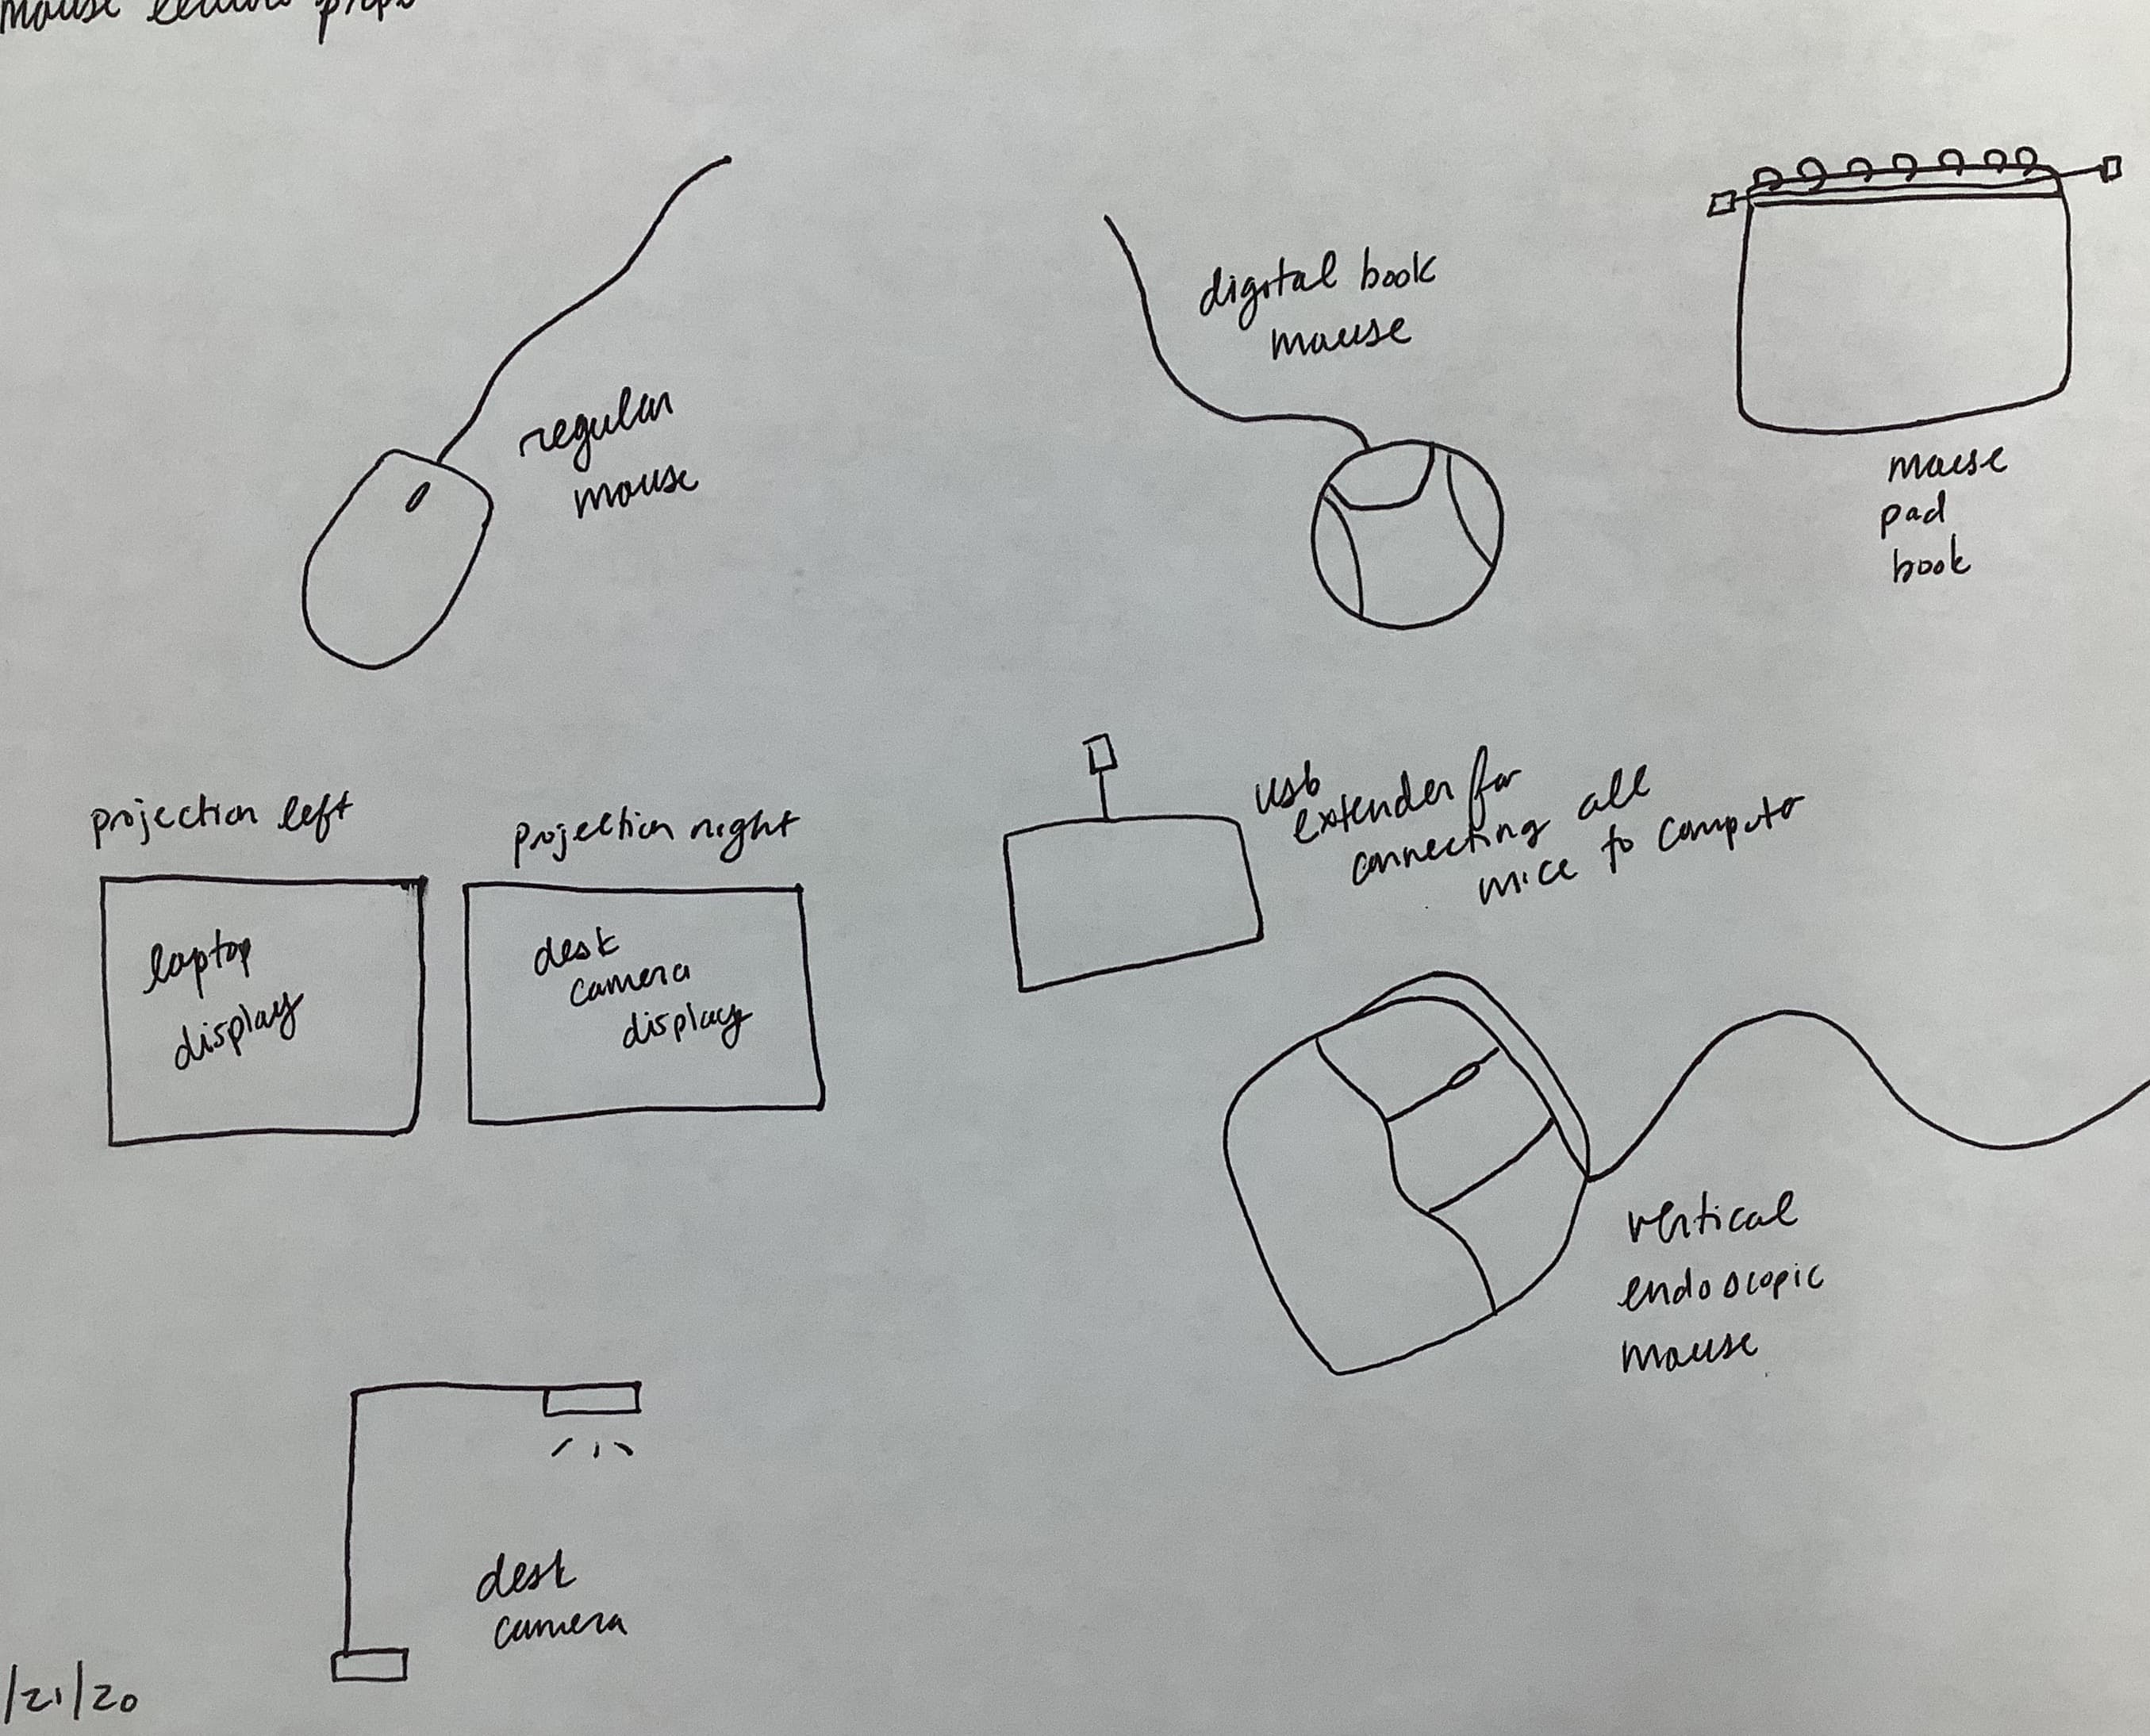 mouse lecture props
regular
mouse
digital book
mouse
mouse
pad
book
projection left
laptop
display
projection right
desk
camera
display
usb
extender for
connecting all
mice to computer
vertical
endoscopic
mouse
desk
camera
/21/20